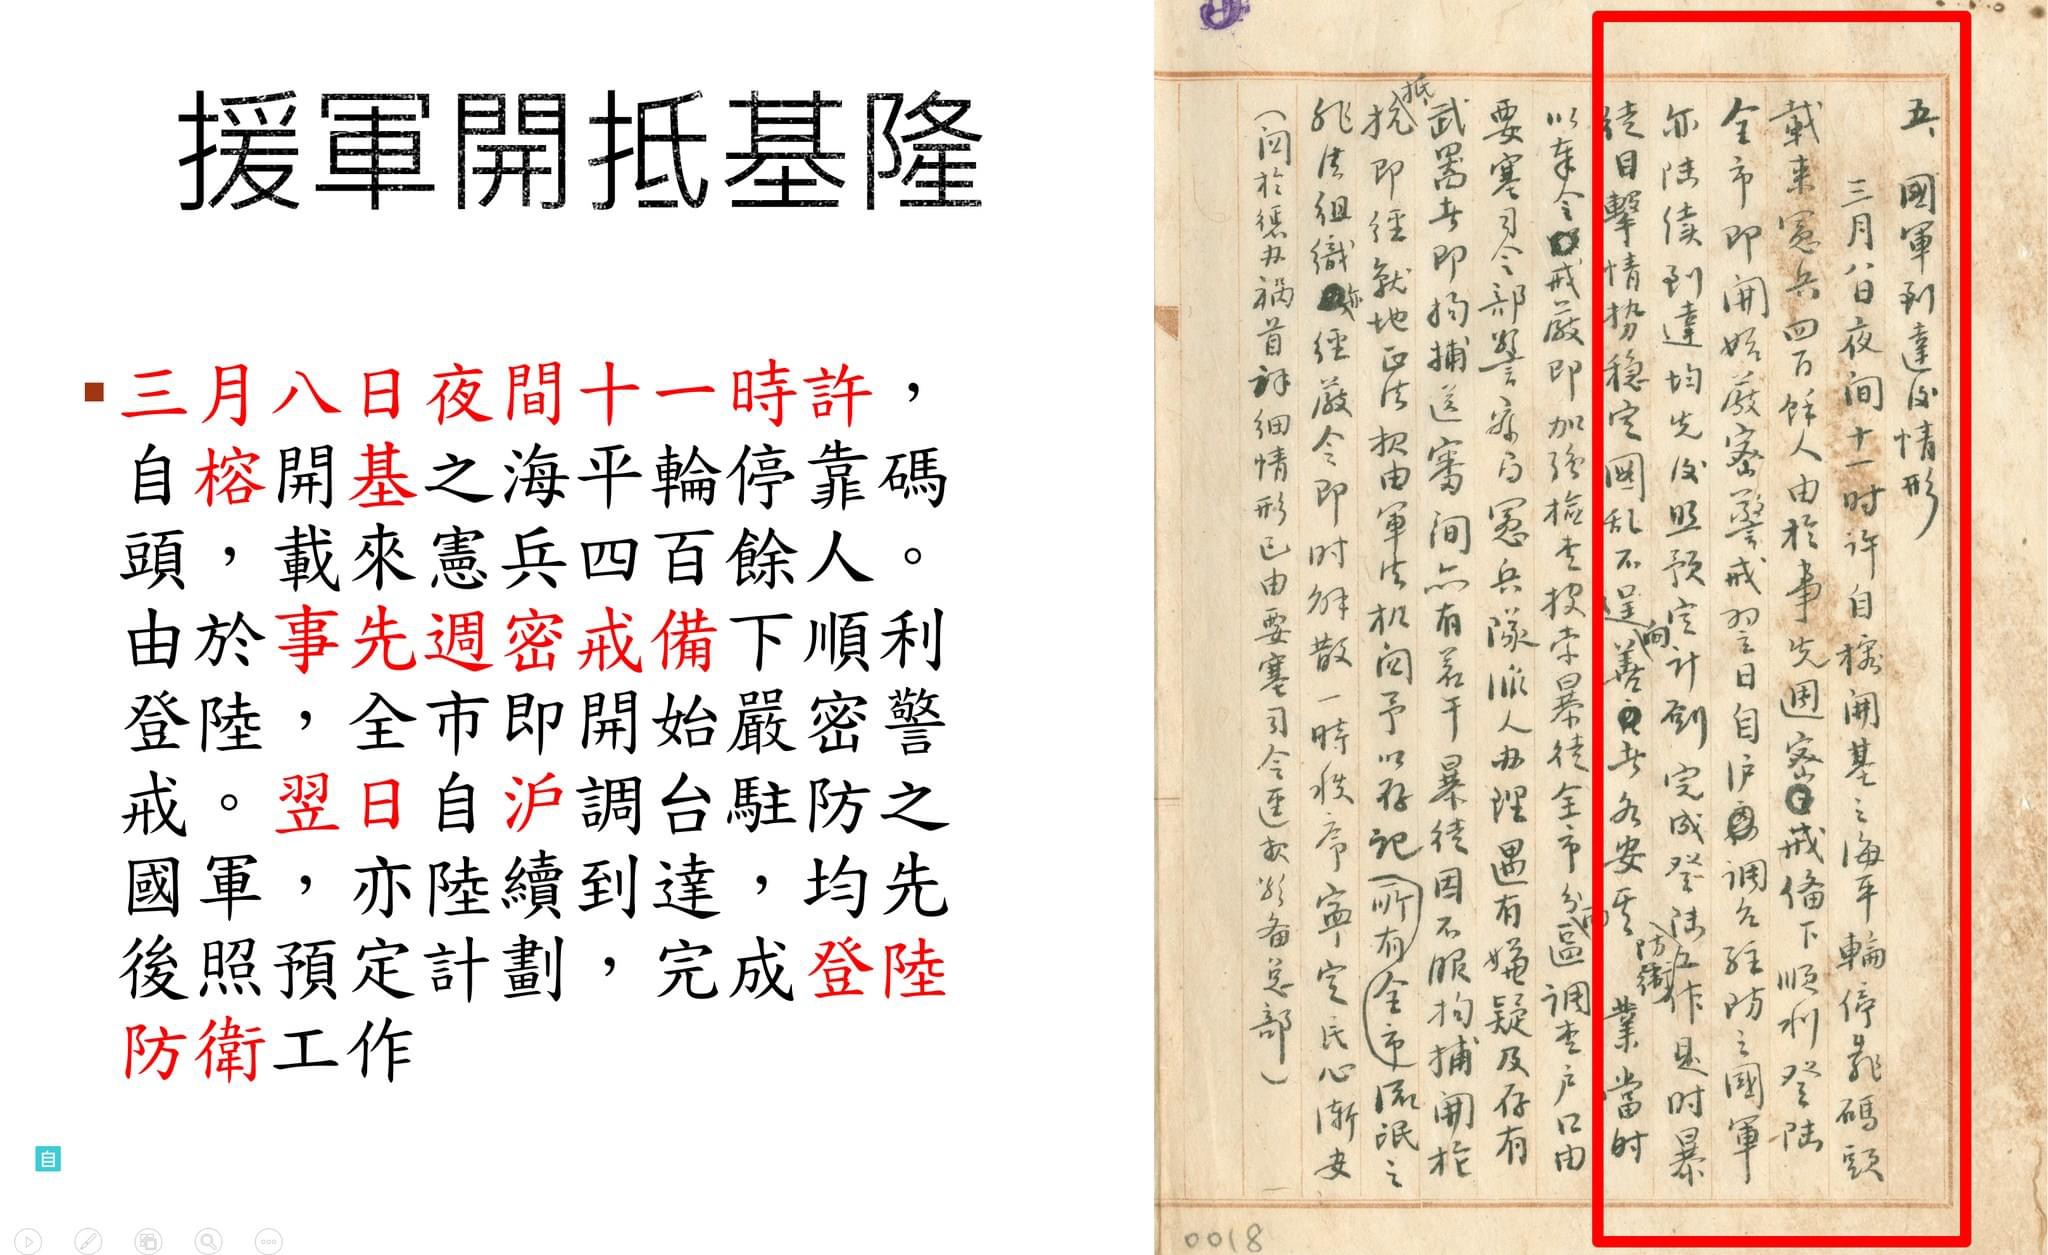 援軍開抵基隆
三月八日夜間十一時許，
自榕開基之海平輪停靠碼
頭，載來憲兵四百餘人。
由於事先週密戒備下順利
登陸，全市即開始嚴密警
戒。翌日自沪調台駐防之
國軍，亦陸續到達，均先
後照預定計劃，完成登陸
防衛工作
自
五、國軍到達後情形
三月八日夜间十一时许自榕開基之海平輪停靠碼頭
載來憲兵四百餘人由於事先週密戒備下順利登陆
全市即開始嚴密警戒翌日自沪調台駐防之國軍
亦陆续到達均先後照预定计劃完成登陆防衛工作是时暴
徒目擊情势稳定圖乱不逞向善者各安其業當时
以奉令戒嚴即加強檢查搜索暴徒全市分區調查户口由
要塞司令部警察局憲兵隊派人办理遇有嫌疑及存有
武器者即拘捕送審间亦有若干暴徒因不服拘捕開槍
抵抗即經就地正法报由軍法机関予以存記所有全市流氓之
非法组織亦經嚴令即时解散一時秩序寧定民心漸安
（関於懲办禍首詳细情形已由要塞司令逕報警备总部）
0018